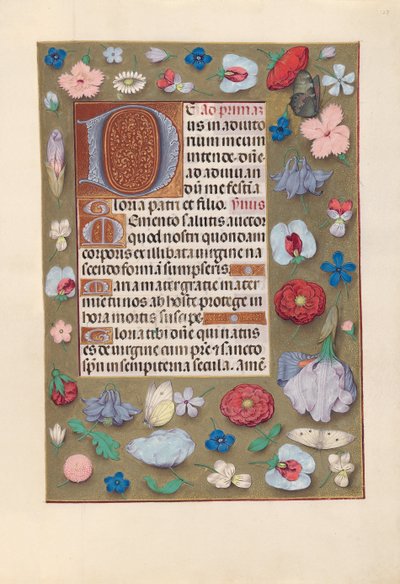 Eus Ad primã
us in adiuto
rium meum
intende. dñe
ad adiuvan
dũ me festĩa
Gloria patri et filio. ymnus
Memento salutis auctor
quod nostri quondam
corporis ex illibata virgine na
scendo formã sumpseris
Maria mater gratie mater
mie tu nos ab hoste protege in
hora mortis suscipe
Gloria tibi dñe qui natus
es de virgine cum pr̃e et sancto
spũ in sempiterna secula. Amẽ